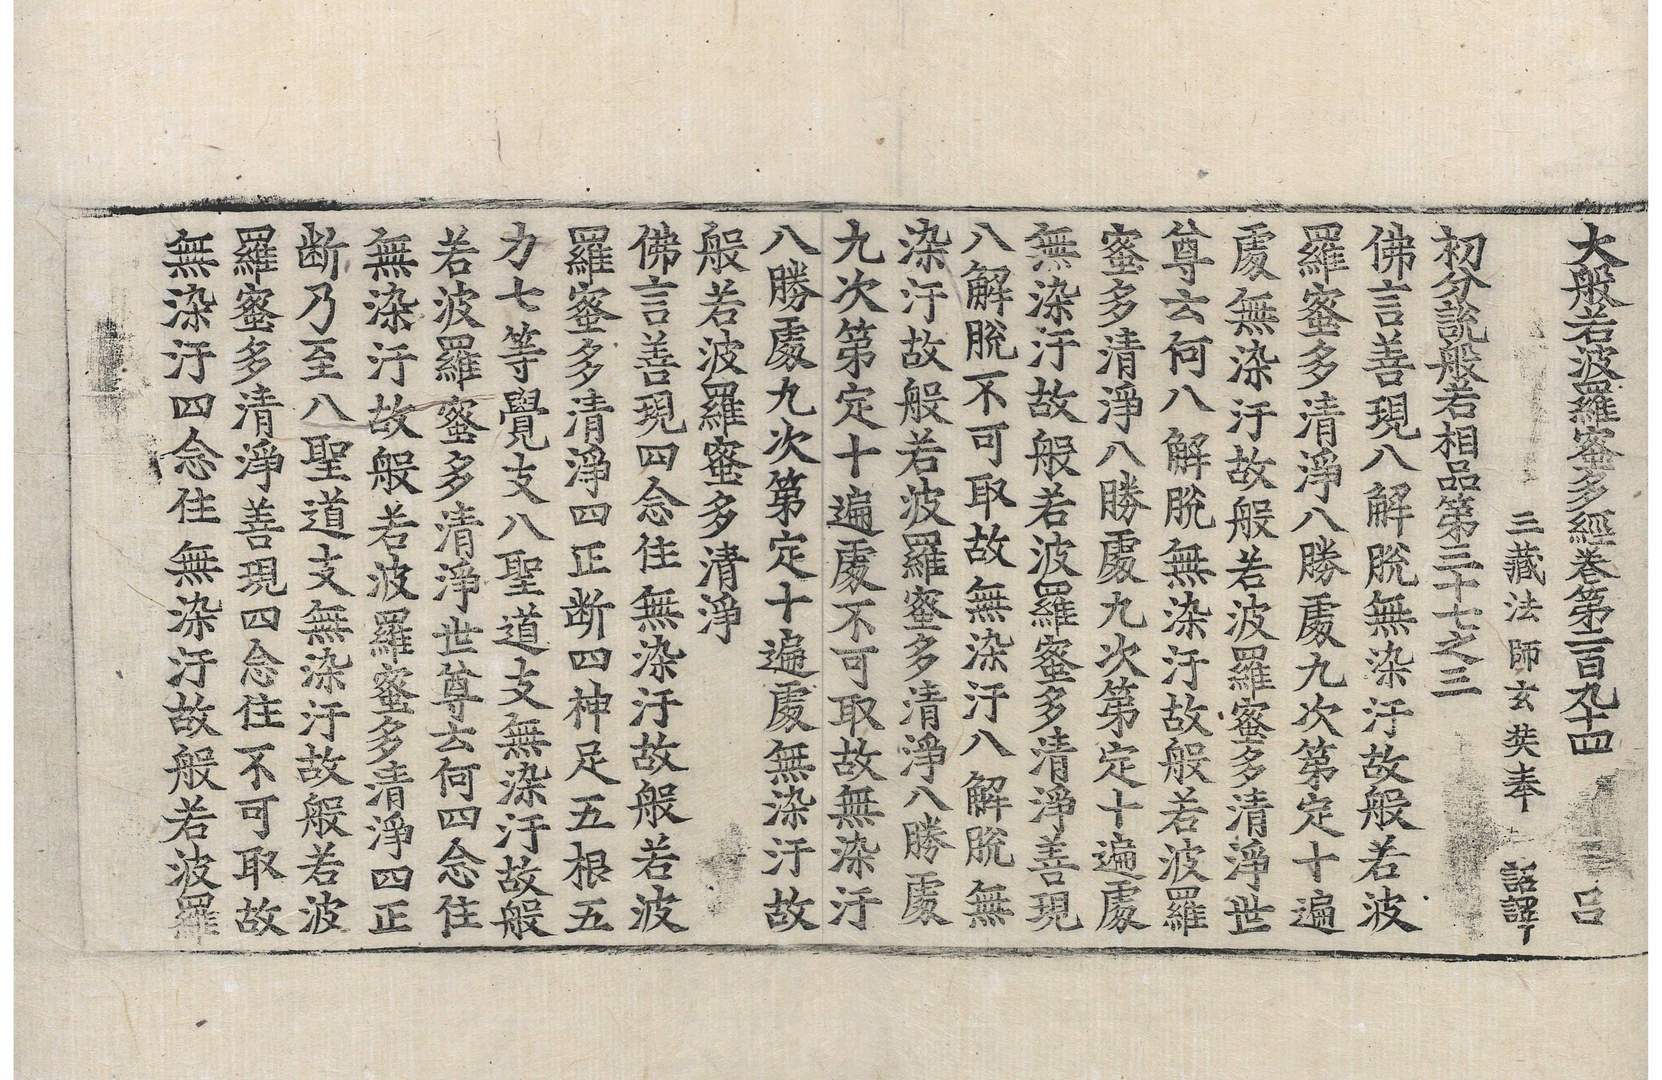 大般若波羅蜜多經卷第二百九十四 呂
三藏法師玄奘奉 詔譯
初分說般若相品第三十七之三
佛言善現八解脫無染汙故般若波
羅蜜多清淨八勝處九次第定十遍
處無染汙故般若波羅蜜多清淨世
尊云何八解脫無染汙故般若波羅
蜜多清淨八勝處九次第定十遍處
無染汙故般若波羅蜜多清淨善現
八解脫不可取故無染汙八解脫無
染汙故般若波羅蜜多清淨八勝處
九次第定十遍處不可取故無染汙
八勝處九次第定十遍處無染汙故
般若波羅蜜多清淨
佛言善現四念住無染汙故般若波
羅蜜多清淨四正断四神足五根五
力七等覺支八聖道支無染汙故般
若波羅蜜多清淨世尊云何四念住
無染汙故般若波羅蜜多清淨四正
断乃至八聖道支無染汙故般若波
羅蜜多清淨善現四念住不可取故
無染汙四念住無染汙故般若波羅